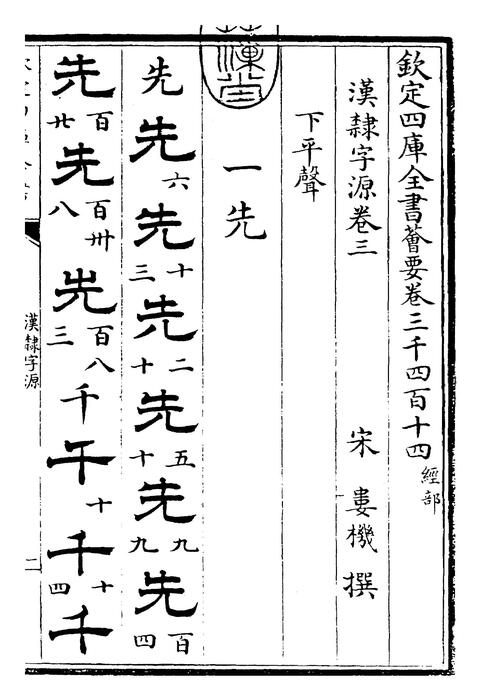 欽定四庫全書薈要卷三千四百十四 經部
漢隸字源卷三 宋 婁機 撰
下平聲
一先
先先六先十三先二十先五十先九九先百四
先百廿先百卅八先百八三千千十千十四千
漢隸字源 二